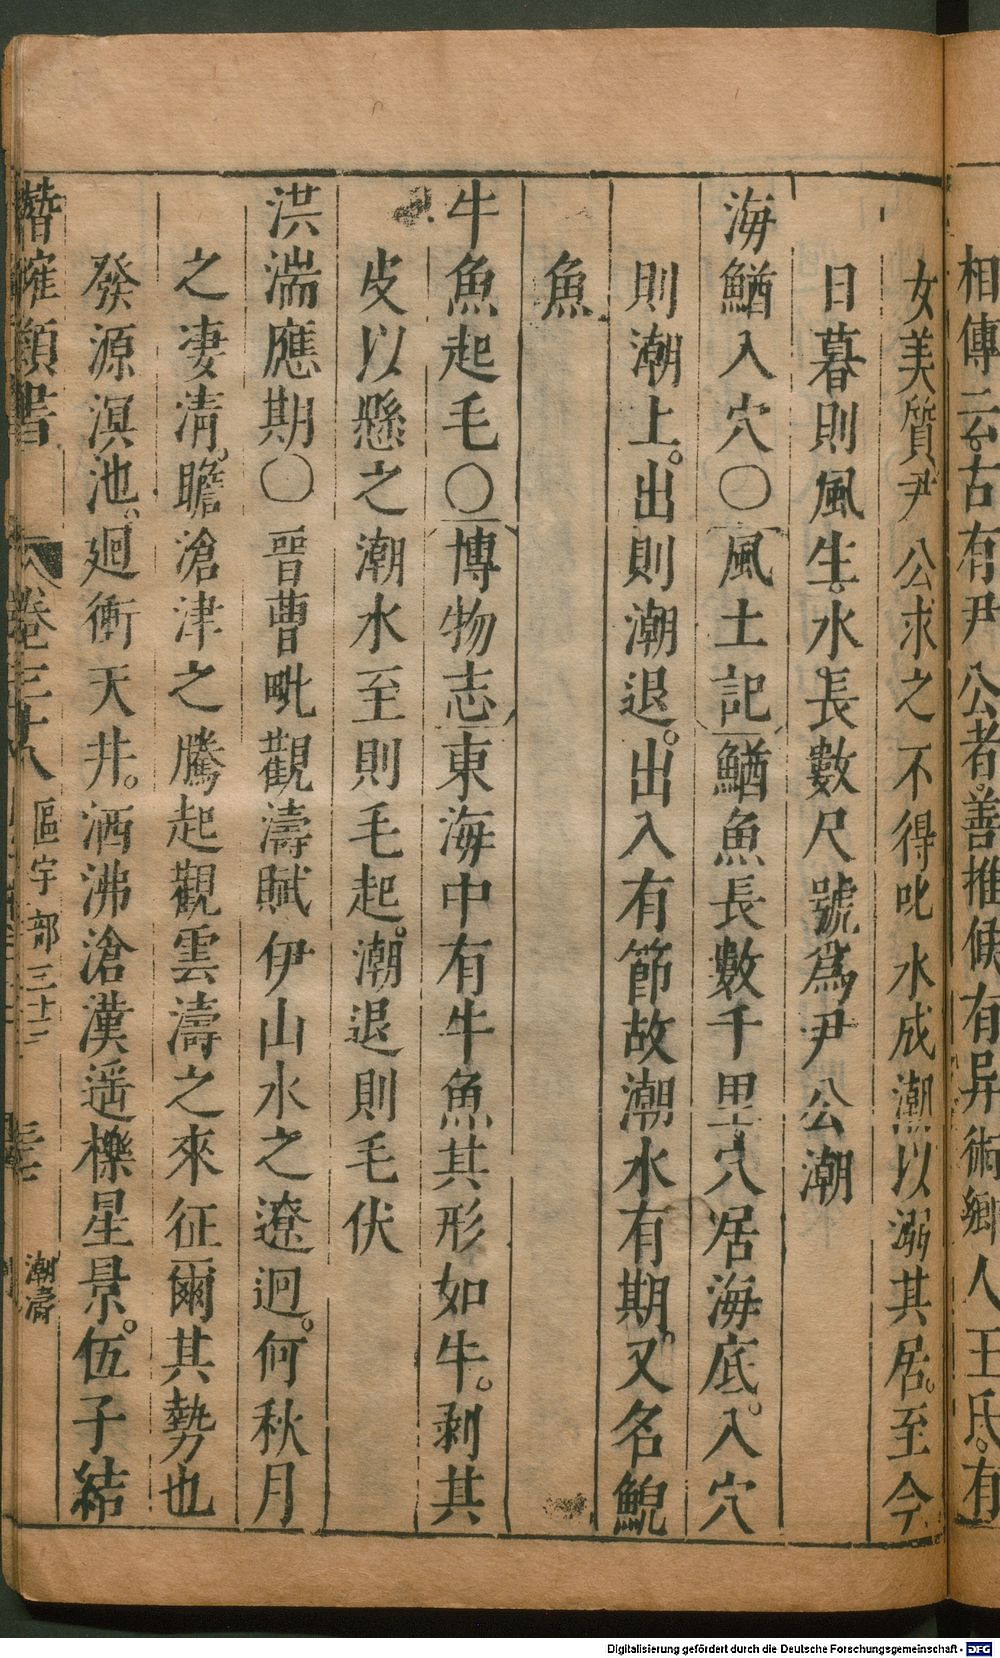 相傳云古有尹公者善推候有异術鄉人王氏有
女美質尹公求之不得叱水成潮以溺其居至今
日暮則風生水長數尺號爲尹公潮
海鰌入穴〇風土記鰌魚長數千里穴居海底入穴
則潮上出則潮退出入有節故潮水有期又名鯢
魚
牛魚起毛〇博物志東海中有牛魚其形如牛剥其
皮以懸之潮水至則毛起潮退則毛伏
洪湍應期〇晉曹毗觀濤賦伊山水之遼迥何秋月
之凄清瞻滄津之騰起觀雲濤之來征爾其勢也
發源溟池廻衝天井洒沸滄漢遥櫟星景伍子結
潛確類書 卷三十八 區宇部三十三 三 潮濤
Digitalisierung gefördert durch die Deutsche Forschungsgemeinschaft - DFG